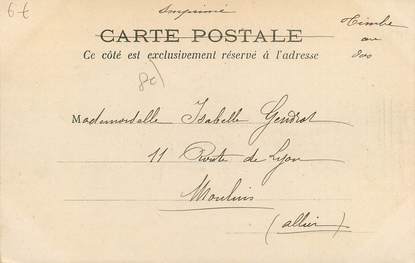 6 €
Imprimé
Timbre
au
dos
CARTE POSTALE
Ce côté est exclusivement réservé à l'adresse
Mademoiselle Isabelle Gendrot
11 Route de Lyon
Moulins
(allier)